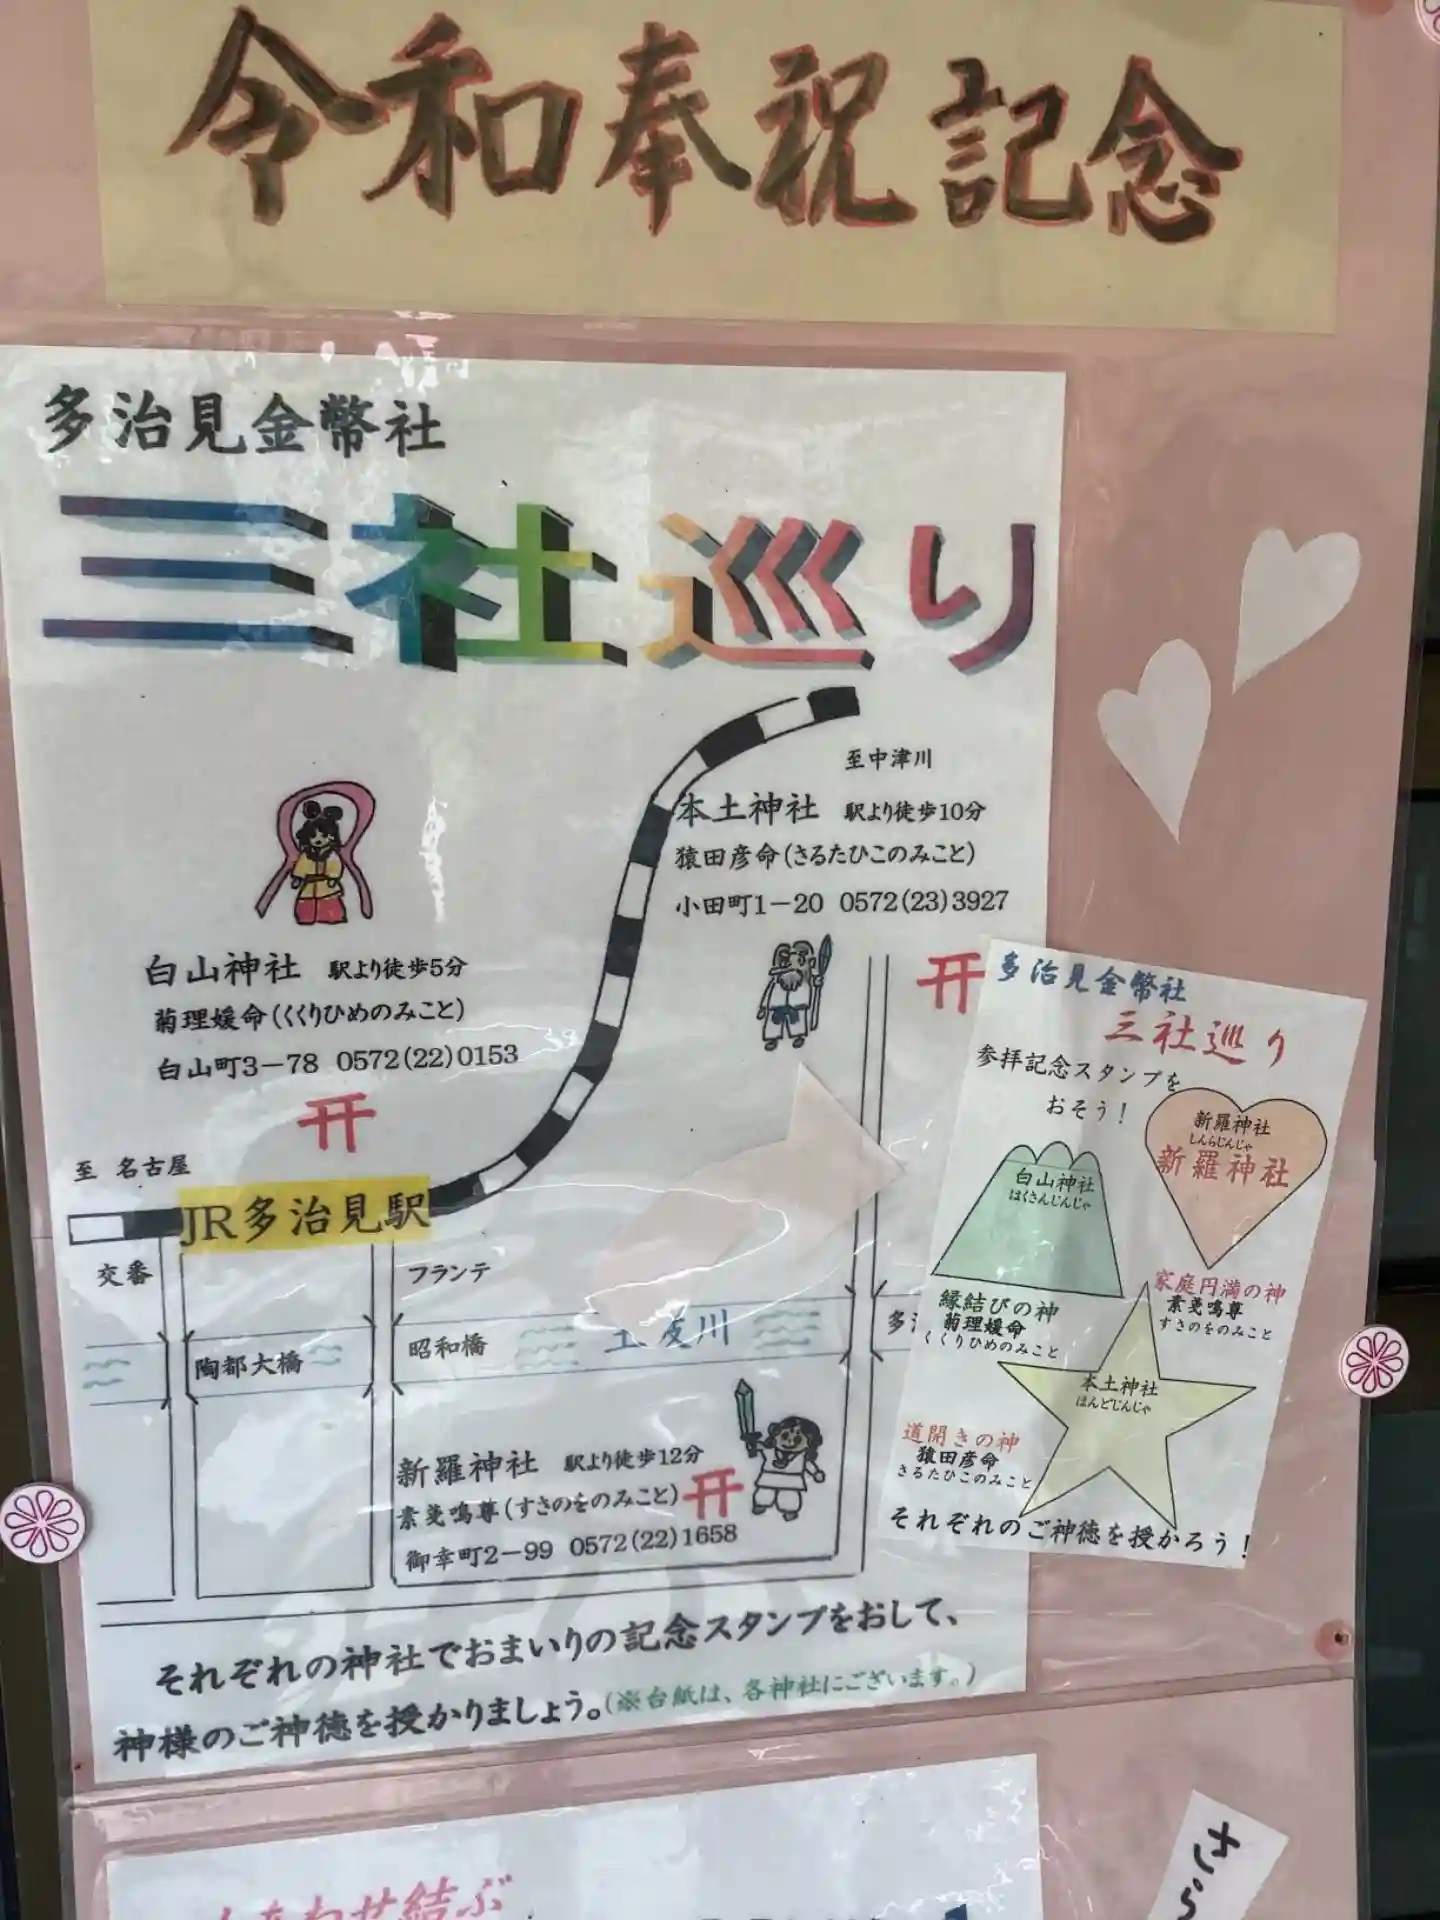 令和奉祝記念
多治見金幣社
三社巡り
至中津川
本土神社 駅より徒歩10分
猿田彦命(さるたひこのみこと)
小田町1-20 0572(23)3927
白山神社 駅より徒歩5分
菊理媛命(くくりひめのみこと)
白山町3-78 0572(22)0153
至 名古屋
JR多治見駅
交番
フランテ
陶都大橋
昭和橋
川
多
新羅神社 駅より徒歩12分
素戔鳴尊(すさのをのみこと)
御幸町2-99 0572(22)1658
それぞれの神社でおまいりの記念スタンプをおして、
神様のご神徳を授かりましょう。(※台紙は、各神社にございます。)
多治見金幣社
三社巡り
参拝記念スタンプを
おそう!
新羅神社
しんらじんじゃ
新羅神社
白山神社
はくさんじんじゃ
家庭円満の神
素戔鳴尊
すさのをのみこと
縁結びの神
菊理媛命
くくりひめのみこと
本土神社
ほんどじんじゃ
道開きの神
猿田彦命
さるたひこのみこと
それぞれのご神徳を授かろう!
しあわせ結ぶ